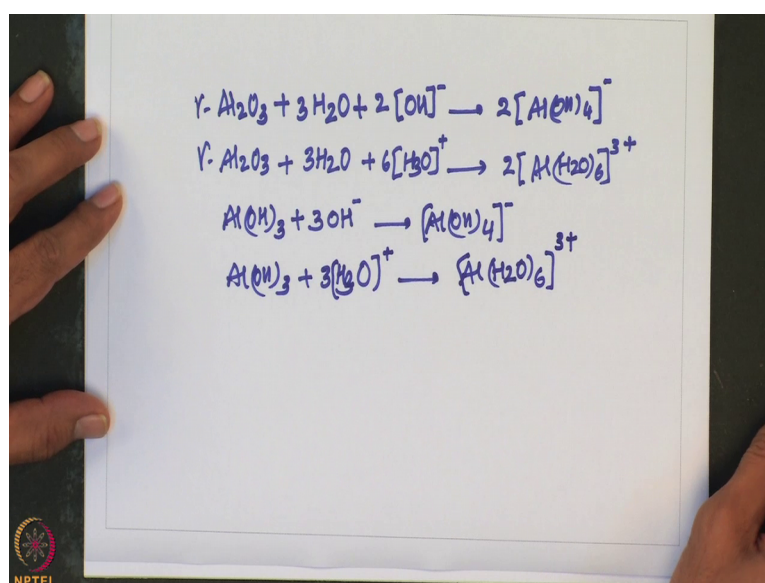 γ- Al₂O₃ + 3H₂O + 2[OH]⁻ ⟶ 2[Al(OH)₄]⁻
γ- Al₂O₃ + 3H₂O + 6[H₃O]⁺ ⟶ 2[Al(H₂O)₆]³⁺
Al(OH)₃ + 3OH⁻ ⟶ [Al(OH)₄]⁻
Al(OH)₃ + 3[H₃O]⁺ ⟶ [Al(H₂O)₆]³⁺
NPTEL